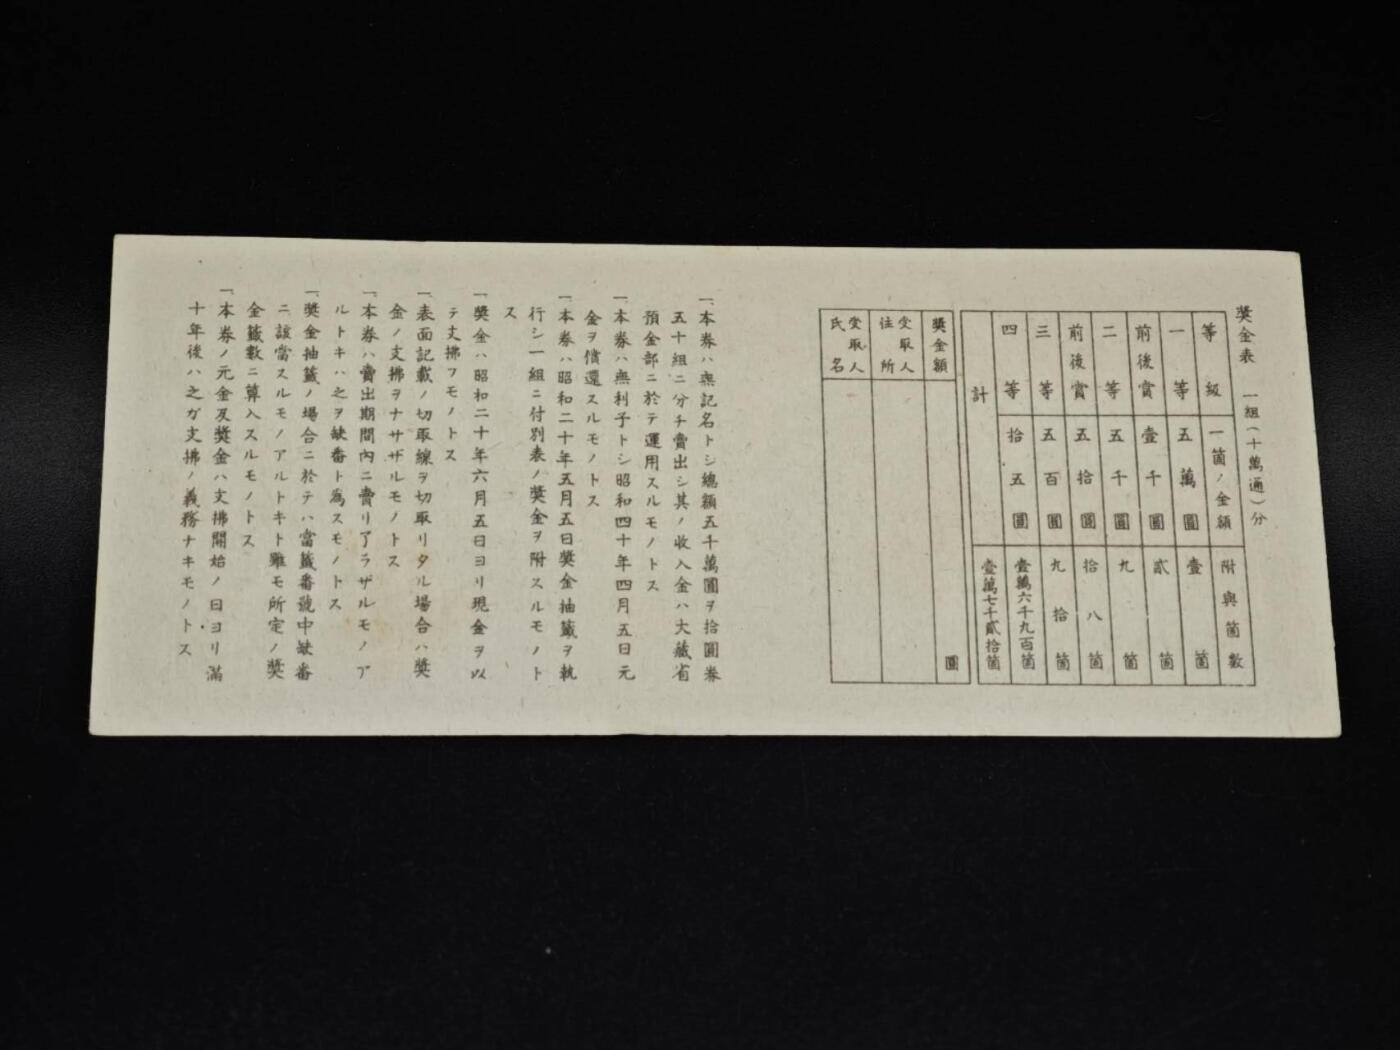 獎金表 一組(十萬通)分
等級 一箇ノ金額 附與箇數
一等 五萬圓 壹箇
前後賞 壹千圓 貳箇
二等 五千圓 九箇
前後賞 五拾圓 拾八箇
三等 五百圓 九拾箇
四等 拾五圓 壹萬六千九百箇
計 壹萬七千貳拾箇
獎金額 圓
受取人住所
受取人氏名
一、本券ハ無記名トシ總額五千萬圓ヲ拾圓券
五十組ニ分チ賣出シ其ノ收入金ハ大藏省
預金部ニ於テ運用スルモノトス
一、本券ハ無利子トシ昭和四十年四月五日元
金ヲ償還スルモノトス
一、本券ハ昭和二十年五月五日獎金抽籤ヲ執
行シ一組ニ付別表ノ獎金ヲ附スルモノト
ス
一、獎金ハ昭和二十年六月五日ヨリ現金ヲ以
テ支拂フモノトス
一、表面記載ノ切取線ヲ切取リタル場合ハ獎
金ノ支拂ヲナサザルモノトス
一、本券ハ賣出期間內ニ賣リ了ラザルモノア
ルトキハ之ヲ缺番ト爲スモノトス
一、獎金抽籤ノ場合ニ於テハ當籤番號中缺番
ニ該當スルモノアルトキト雖モ所定ノ獎
金籤數ニ算入スルモノトス
一、本券ノ元金及獎金ハ支拂開始ノ日ヨリ滿
十年後ハ之ガ支拂ノ義務ナキモノトス